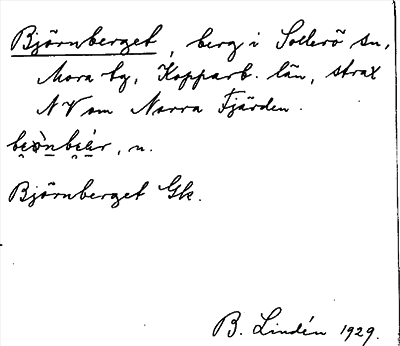 Björnberget, berg i Sollerö sn,
Mora tg, Kopparb. län, strax
NV om Norra Fjärden.
n.
Björnberget Gk.
B. Lindén 1929.